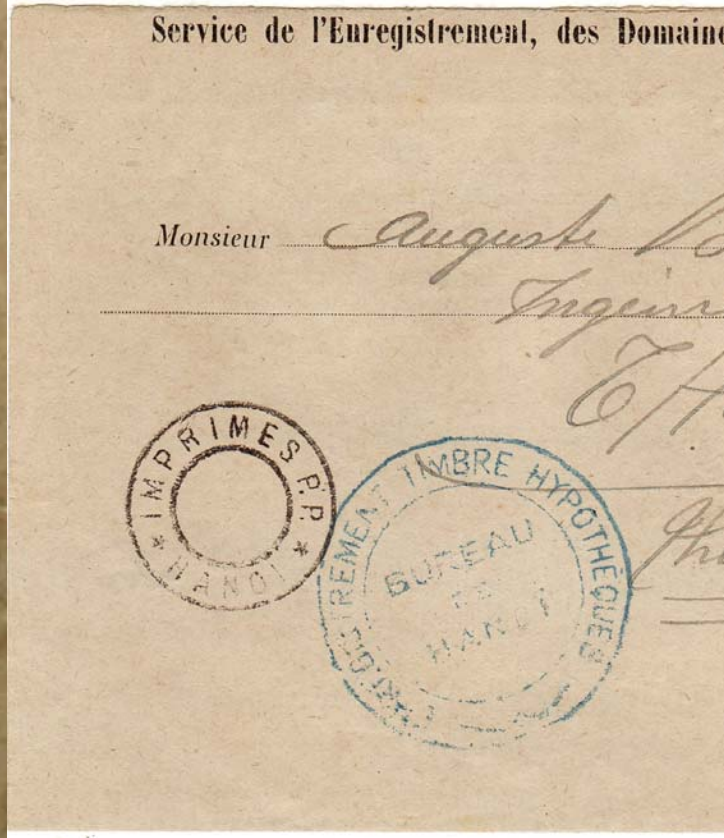 Service de l'Enregistrement, des Domaine
Monsieur Auguste
TH
IMPRIMES P.P.
* HANOI *
ENREGISTREMENT TIMBRE HYPOTHÈQUES
BUREAU
DE
HANOI